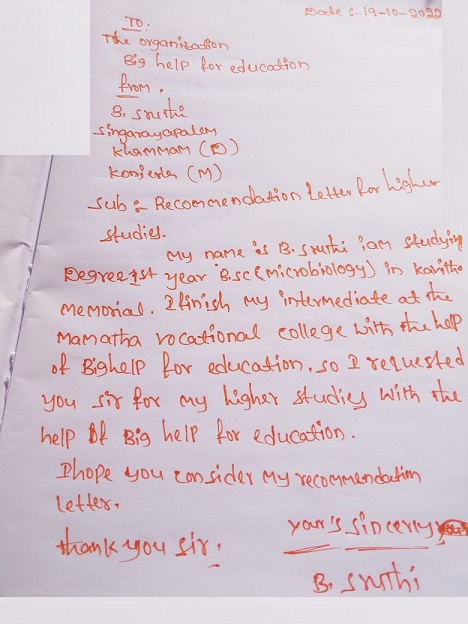 Date :- 19-10-2022
TO:
The organization
Big help for education
from,
B. sruthi
singarayapalem
Khammam (D)
Konijerla (M)
Sub :- Recommendation letter for higher
studies.
My name is B. sruthi iam studying
Degree 1st year B.sc (microbiology) in kavitha
memorial. I finish my intermediate at the
Mamatha vocational college with the help
of Bighelp for education. so I requested
you sir for my higher studies with the
help of Big help for education.
I hope you consider my recommendation
letter.
thank you sir.
your's sincerly
B. sruthi